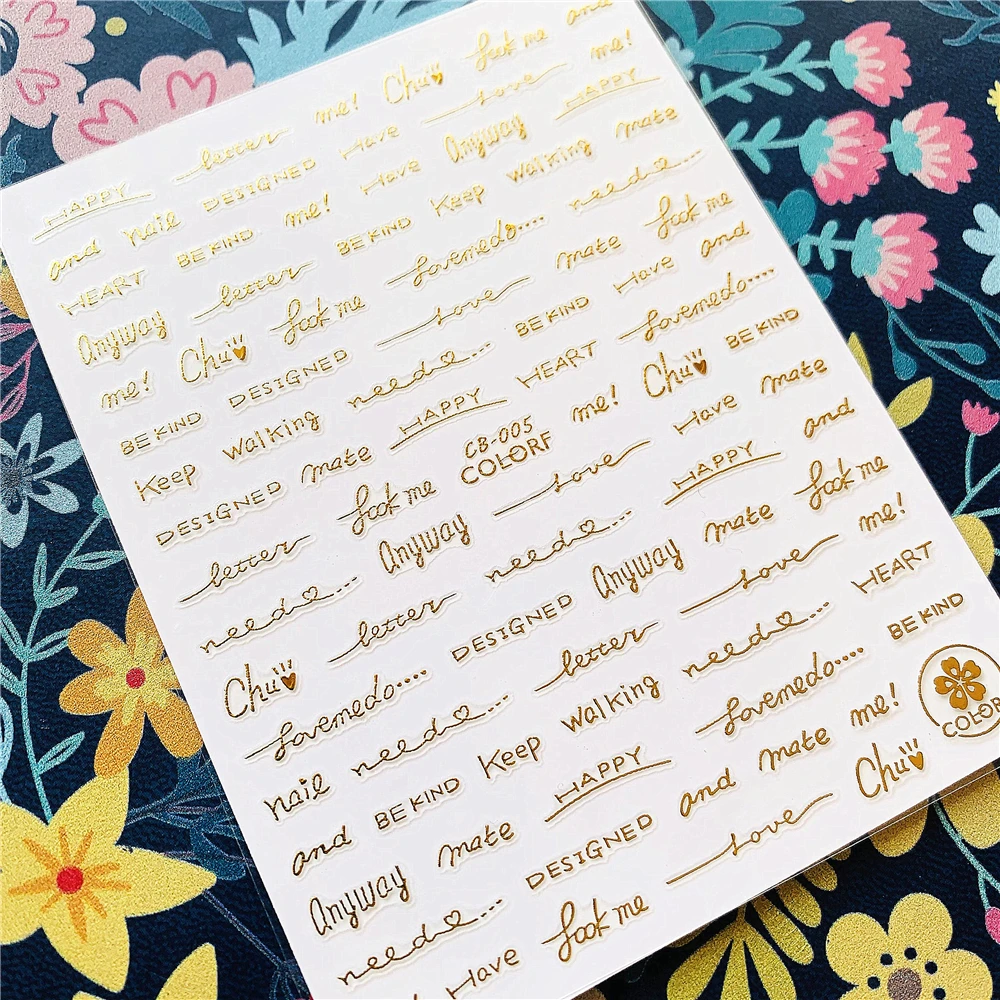 HAPPY better me! Chu look me and
and nail DESIGNED Have love me!
HEART BE KIND me! Have Anyway HAPPY
Anyway better BE KIND Keep walking mate
me! Chu look me lovemedo.... need...
BE KIND DESIGNED love mate look me
Keep walking need... BE KIND Have and
DESIGNED mate HAPPY HEART lovemedo....
better look me CB-005 me! Chu BE KIND
COLORF
need... Anyway love Have mate
Chu better need... HAPPY and
lovemedo.... DESIGNED Anyway mate look me
nail need... better love me!
and BE KIND Keep walking need... HEART
Anyway mate HAPPY lovemedo.... BE KIND
need... DESIGNED and mate me! COLORF
Have look me love Chu